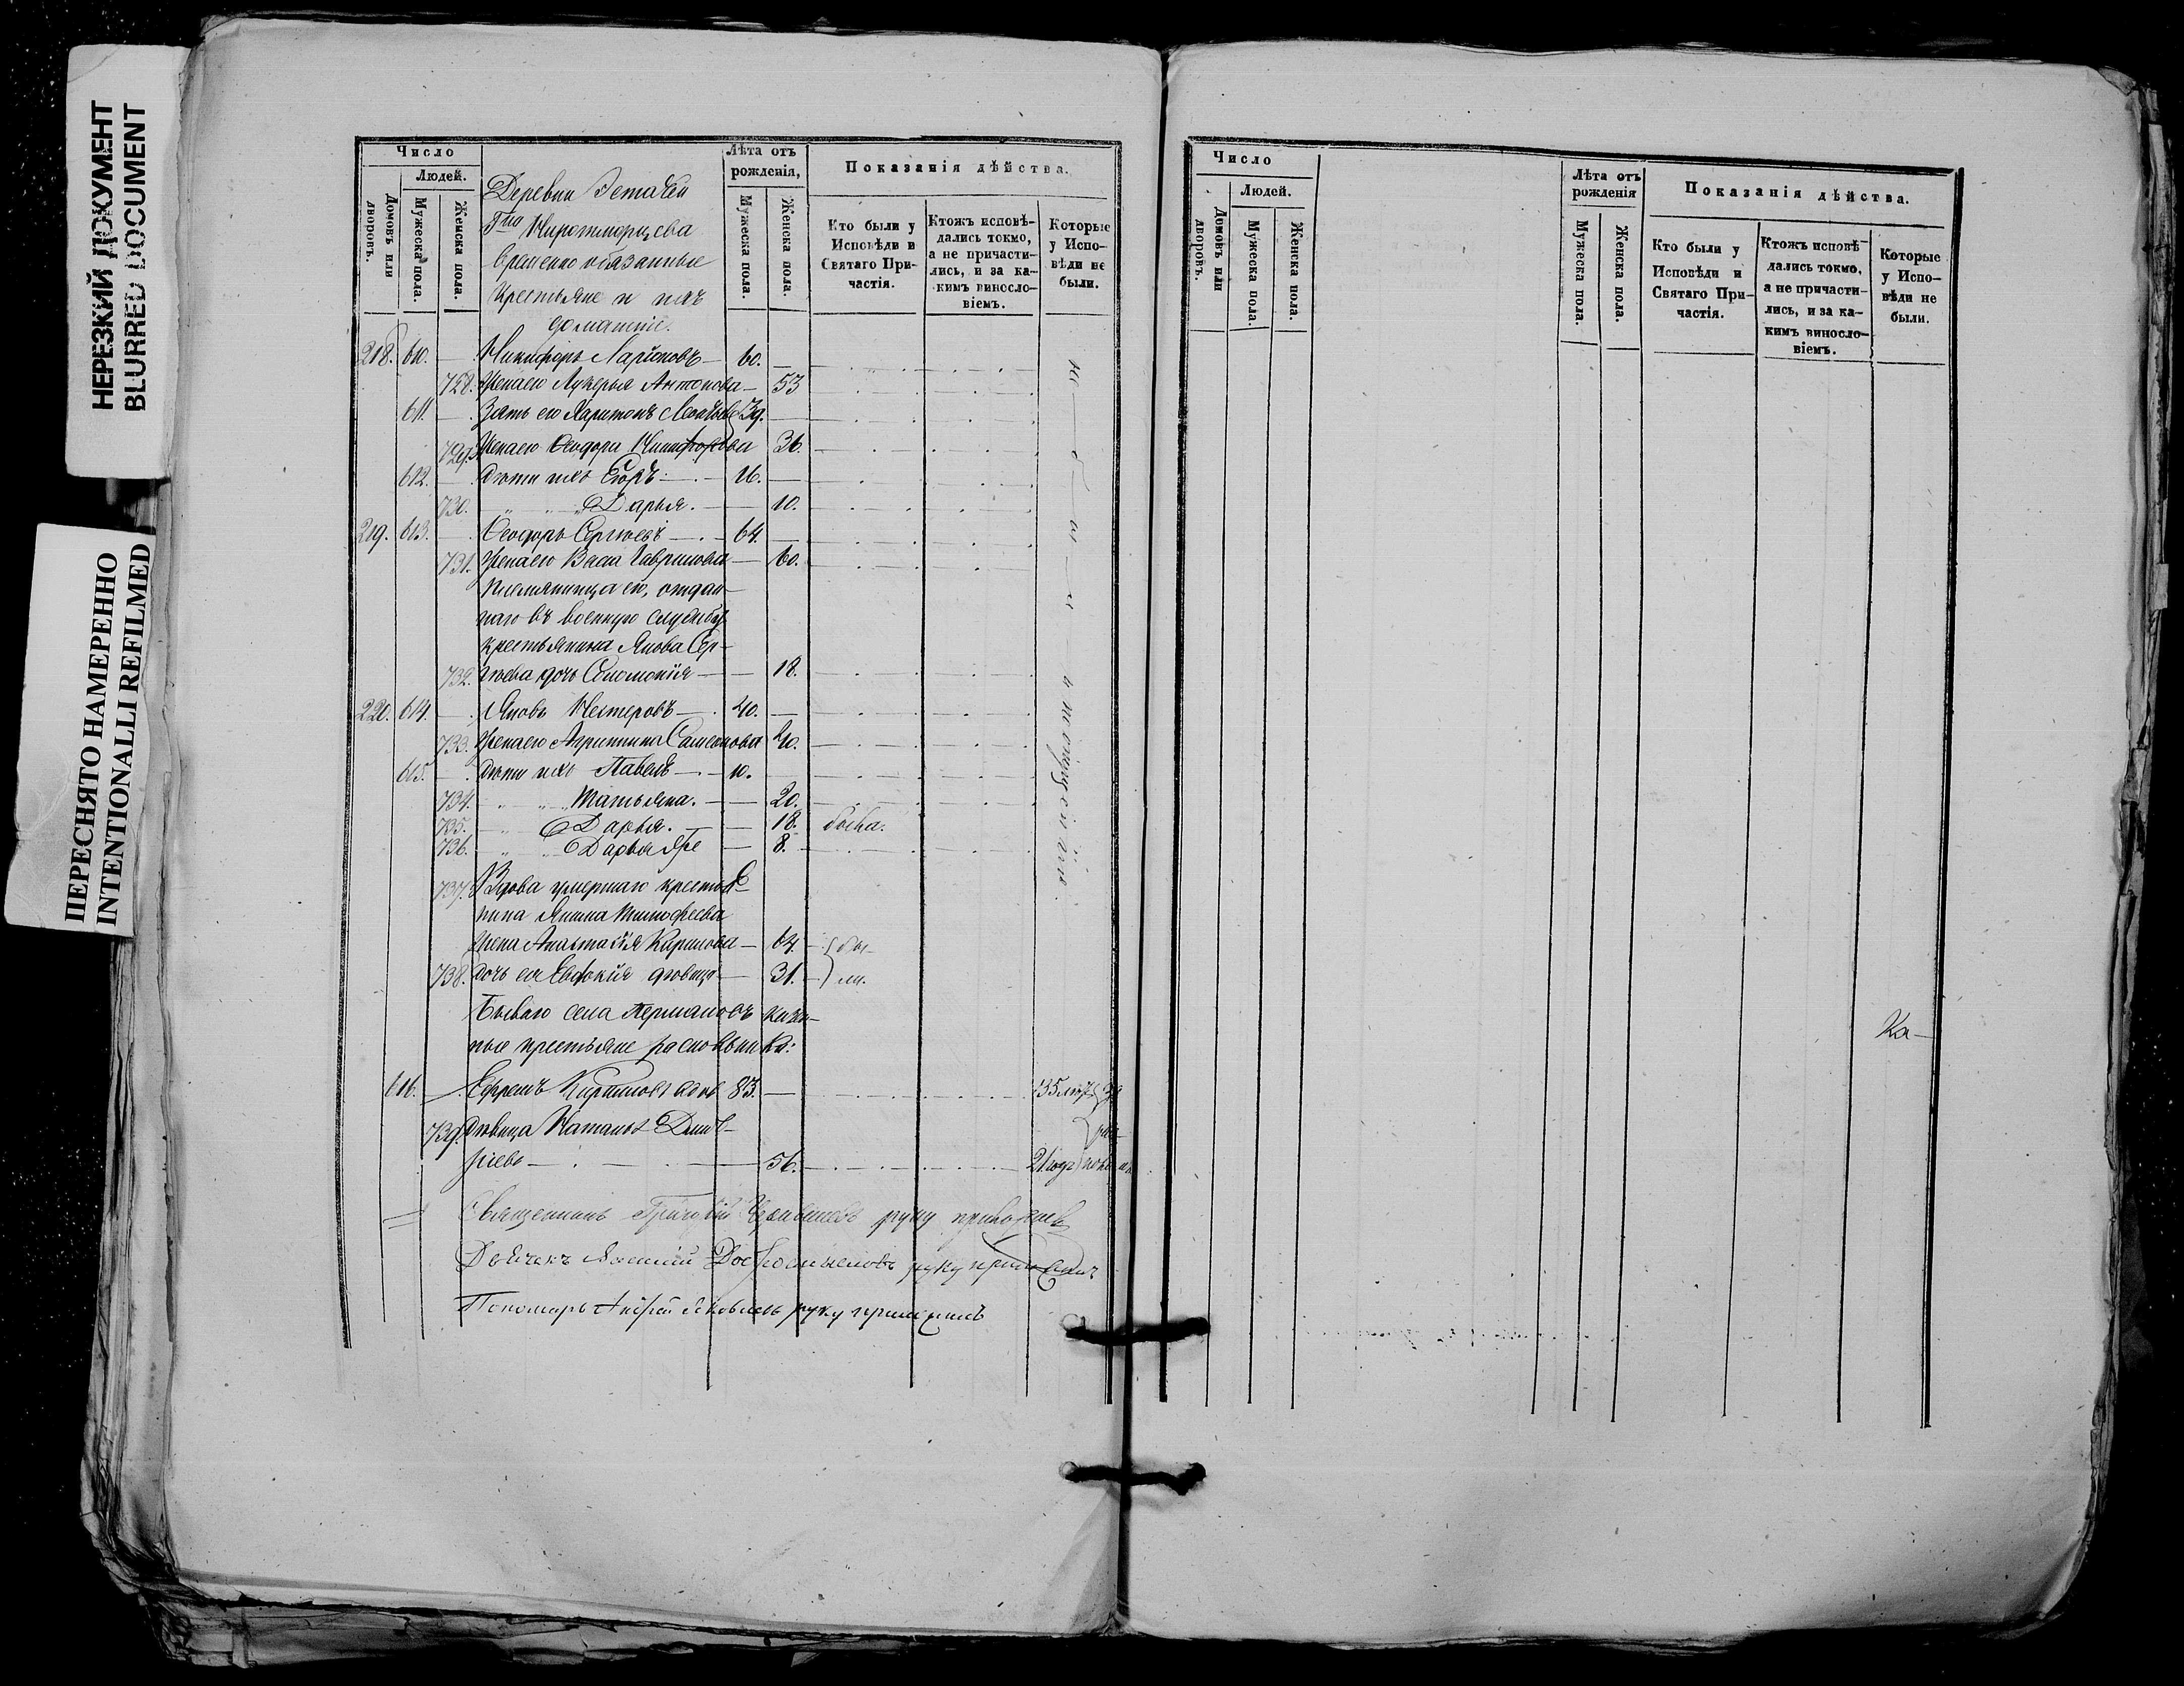 НЕРЕЗКИЙ ДОКУМЕНТ
BLURRED DOCUMENT
ПЕРЕСНЯТО НАМЕРЕННО
INTENTIONALLI REFILMED
Число
Людей.
Домовъ или дворовъ.
Мужеска пола.
Женска пола.
Деревни
временно обязанные
крестьяне и ихъ
домашніе.
Лѣта отъ рожденія,
Мужеска пола.
Женска пола.
Показанія дѣйства.
Кто были у Исповѣди и Святаго Причастія.
Ктожъ исповѣдались токмо, а не причастились, и за какимъ винословіемъ.
Которые у Исповѣди не были.
218. 610. Никифоръ Ларіоновъ 60.
728. Жена его Лукерья Антонова 53
611. Зять его Харитонъ 39.
729. Жена его Ѳеодора Никифорова 36.
612. Дѣти ихъ Егоръ 16.
730. Дарья. 10.
219. 613. Ѳеодоръ Сергѣевъ 64.
731. Жена его Васса Гаврилова 60.
Племянница его, отдан-
наго въ военную службу
крестьянина Якова Сер-
732. гѣева дочь Соломонія 18.
220. 614. Яковъ Нестеровъ 40.
733. Жена его Агрипина Самсонова 40.
615. Дѣти ихъ Павелъ 10.
734. Татьяна. 20.
735. Дарья. 18. была.
736. Дарья же 8.
737. Вдова умершаго крестья-
нина Якима Тимофеева
жена Анастасія Карпова 64. бы-
738. дочь ея Евдокія дѣвица 31. ли.
Бывшаго села казен-
ные крестьяне раскольники:
616. Ефремъ Кириловъ вдовъ 83. 35 лѣтъ за
739. Дѣвица Наталья Дмит-
ріева 56. 21 годъ
Священникъ Григорій руку приложилъ
Дьячекъ Добромысловъ руку приложилъ
Пономарь Андрей Яковлевъ руку приложилъ
Число
Людей.
Домовъ или дворовъ.
Мужеска пола.
Женска пола.
Лѣта отъ рожденія
Мужеска пола.
Женска пола.
Показанія дѣйства.
Кто были у Исповѣди и Святаго Причастія.
Ктожъ исповѣдались токмо, а не причастились, и за какимъ винословіемъ.
Которые у Исповѣди не были.
Ка-